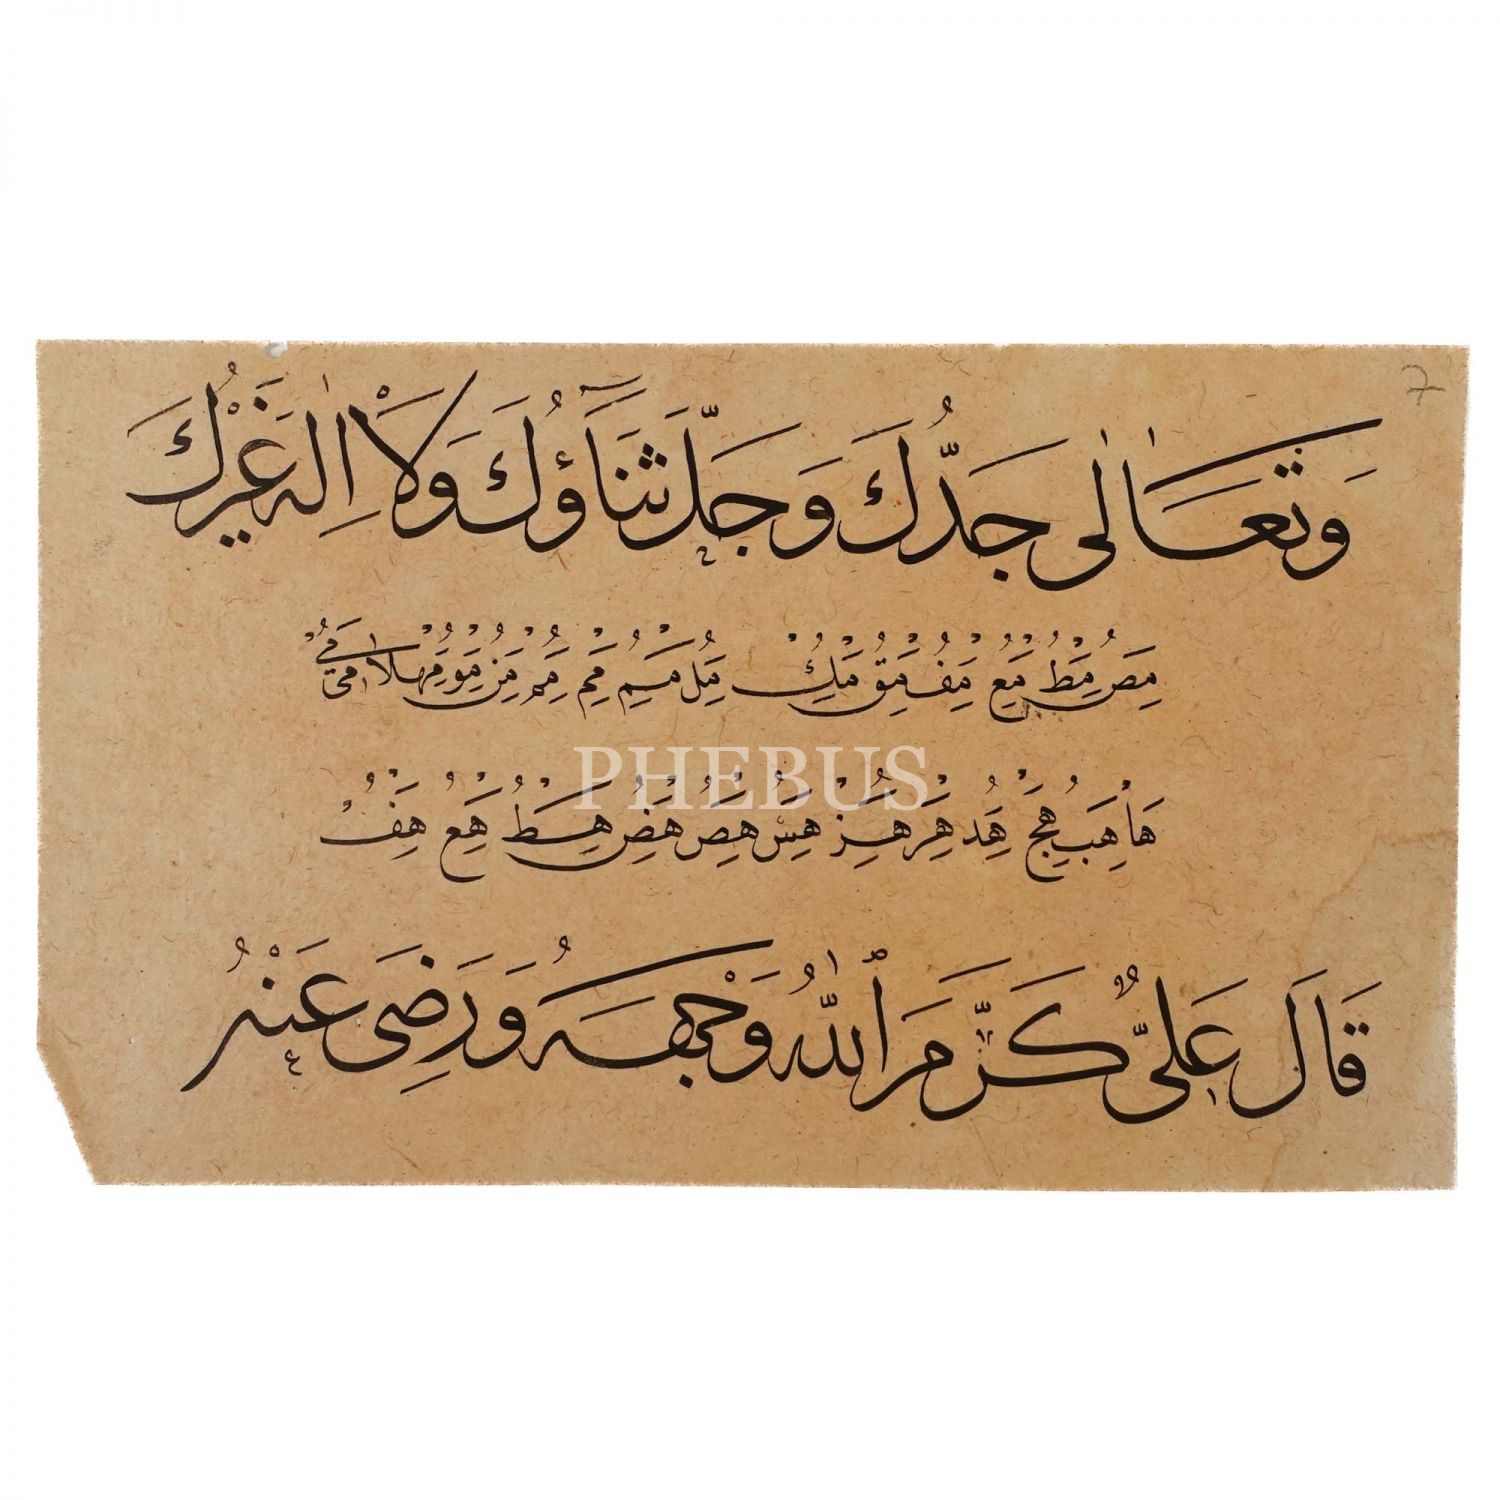 7
وَتَعَالٰى جَدُّكَ وَجَلَّ ثَنَاؤُكَ وَلَا اِلٰهَ غَيْرُكَ
مص مط مع مف مق مك مل مم مم من مو مه ملا مى
ها هب هج هد هر هز هس هص هض هط هع هف
PHEBUS
قَالَ عَلِىٌّ كَرَّمَ اللّٰهُ وَجْهَهُ وَرَضِىَ عَنْهُ